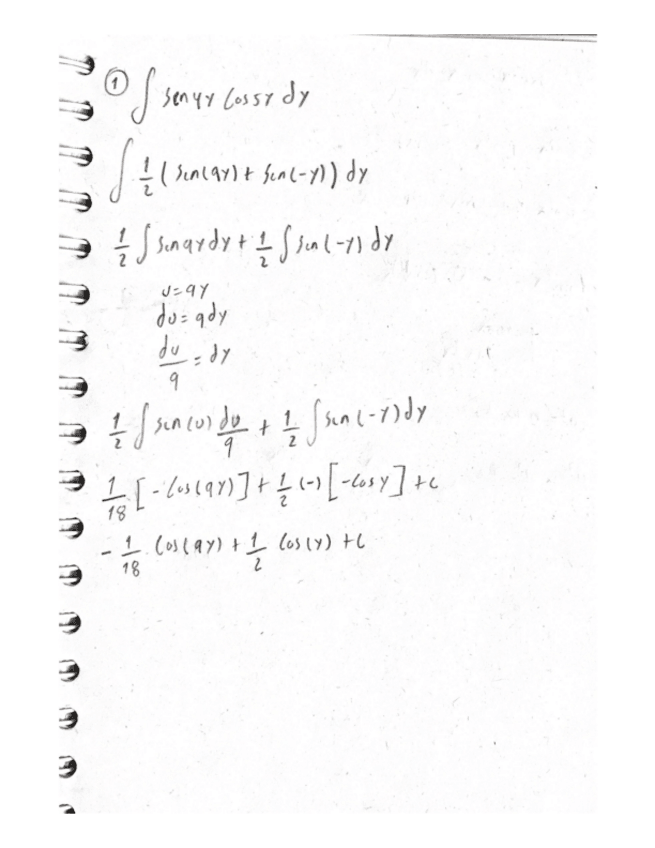 ① ∫ sen4y cos5y dy
∫ 1/2 (sen(9y) + sen(-y)) dy
1/2 ∫ sen9y dy + 1/2 ∫ sen(-y) dy
u=9y
du=9dy
du/9 = dy
1/2 ∫ sen(u) du/9 + 1/2 ∫ sen(-y) dy
1/18 [-cos(9y)] + 1/2 (-) [-cosy] + c
-1/18 cos(9y) + 1/2 cos(y) + c